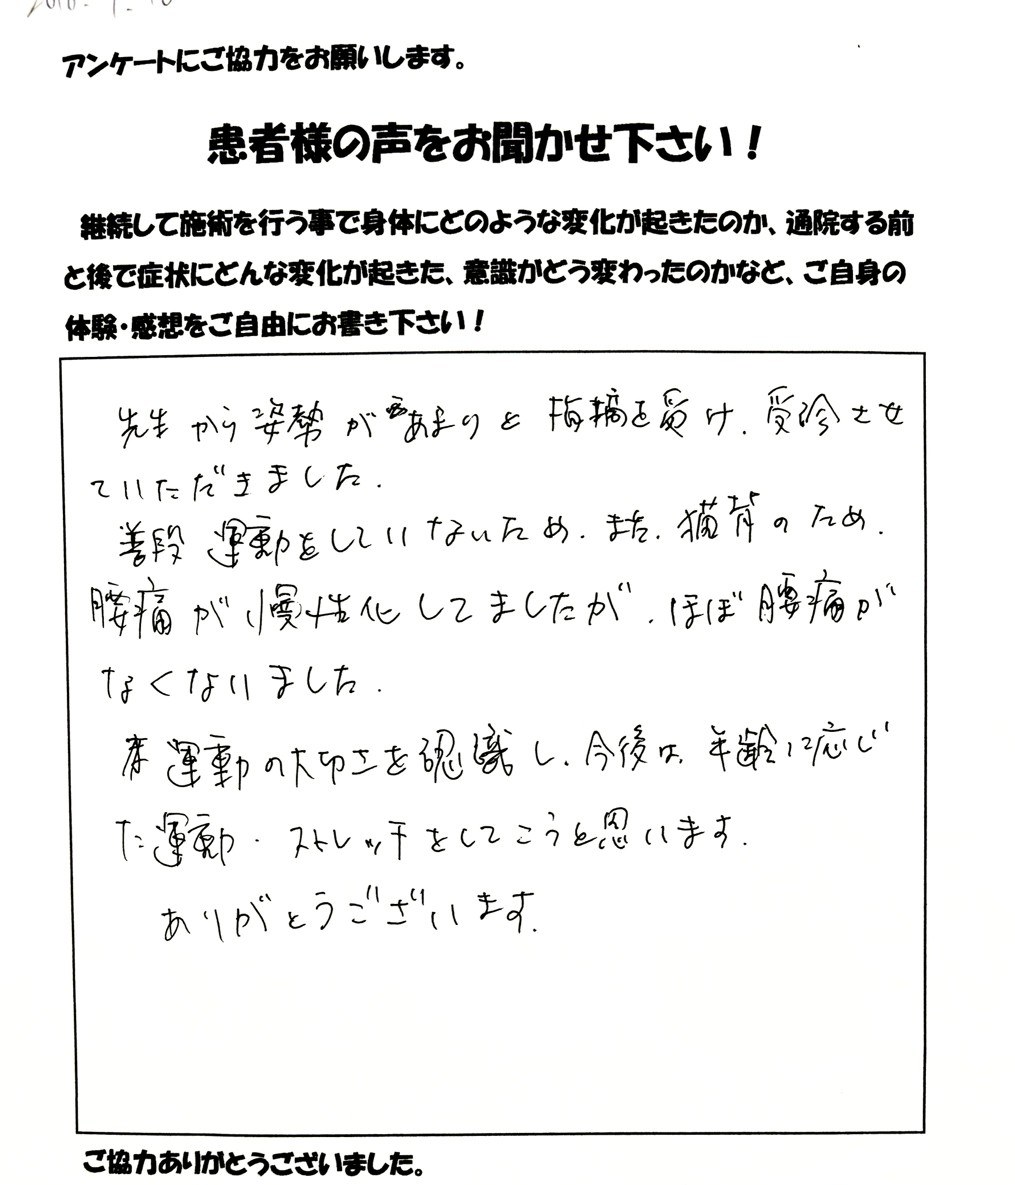 アンケートにご協力をお願いします。
患者様の声をお聞かせ下さい！
継続して施術を行う事で身体にどのような変化が起きたのか、通院する前
と後で症状にどんな変化が起きた、意識がどう変わったのかなど、ご自身の
体験・感想をご自由にお書き下さい！
先生から姿勢があまりと指摘を受け、受診させ
ていただきました.
普段運動をしていないため、また、猫背のため、
腰痛が慢性化してましたが、ほぼ腰痛が
なくないました.
運動の大切さを認識し、今後は、年齢に応じ
た運動・ストレッチをしてこうと思います.
ありがとうございます.
ご協力ありがとうございました。